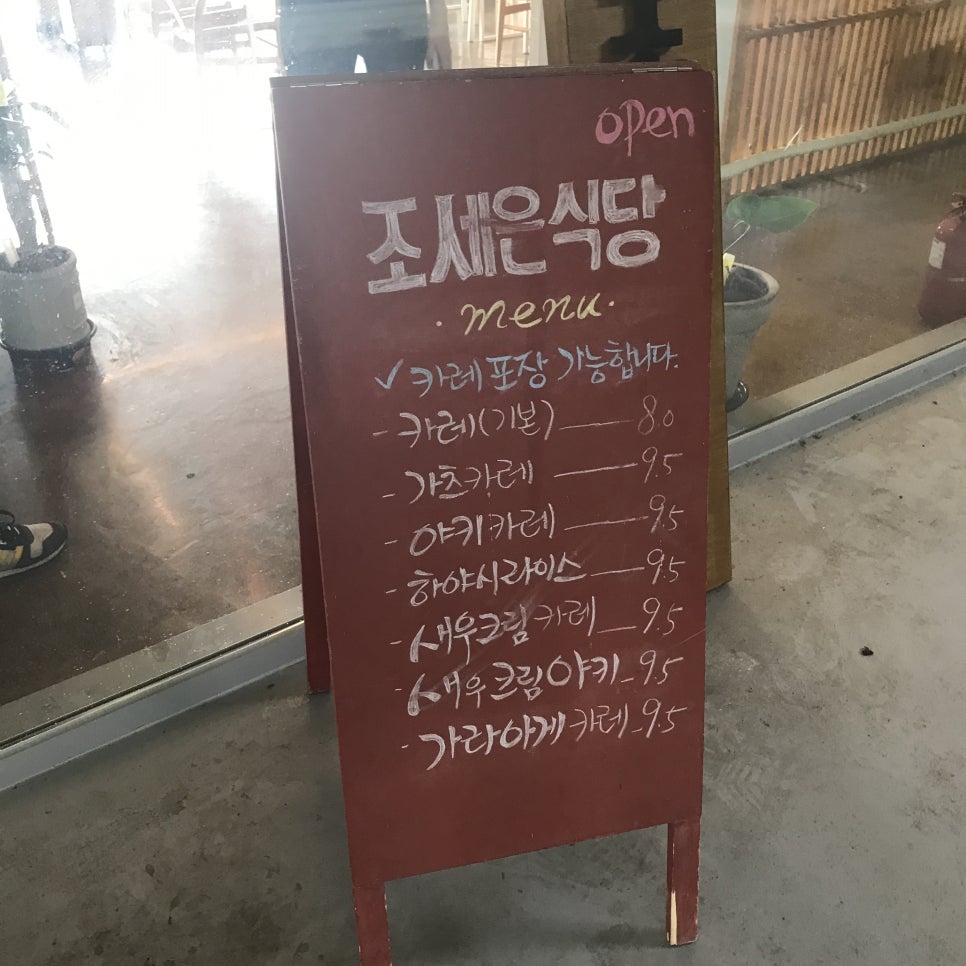 open
조세은식당
· menu ·
✓ 카레 포장 가능합니다.
- 카레(기본) — 8.0
- 가츠카레 — 9.5
- 야키카레 — 9.5
- 하야시라이스 — 9.5
- 새우크림카레 — 9.5
- 새우크림야키 - 9.5
- 가라아게카레 - 9.5